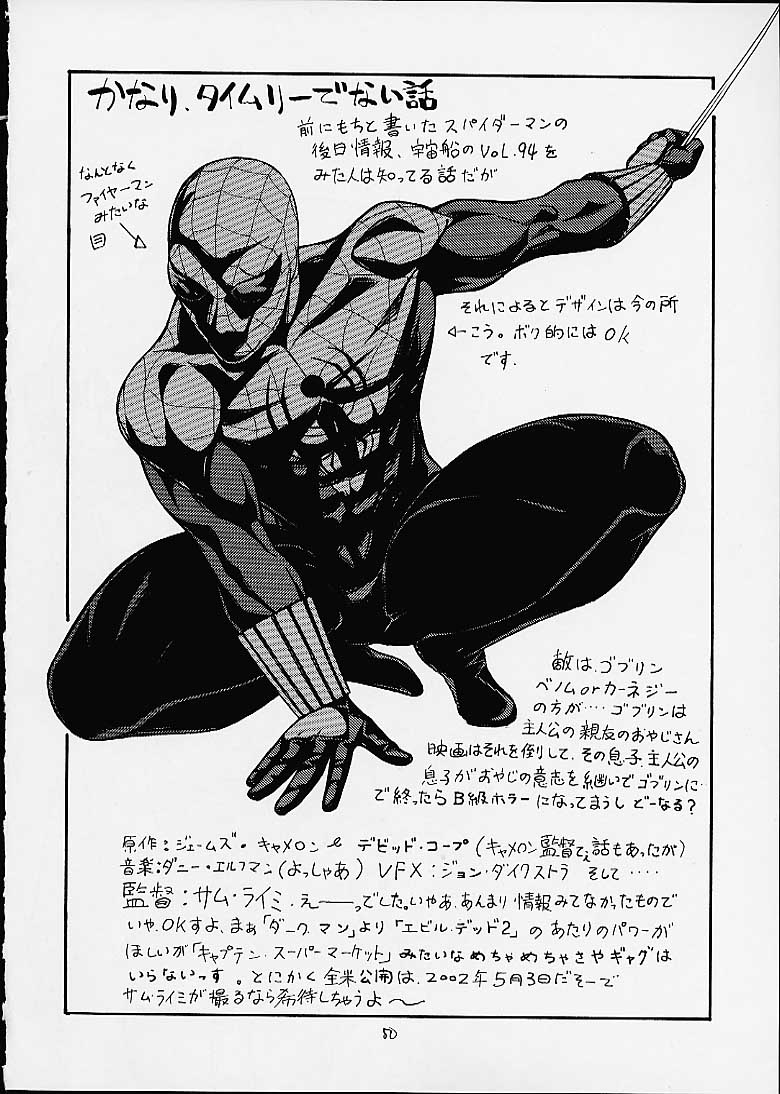 かなり、タイムリーでない話
前にもちと書いたスパイダーマンの
後日情報、宇宙船のVOL.94を
みた人は知ってる話だが
なんとなく
ファイヤーマン
みたいな
目
それによるとデザインは今の所
←こう。ボク的にはOK
です.
敵は、ゴブリン
ベノムorカーネジー
の方が‥‥ゴブリンは
主人公の親友のおやじさん
映画はそれを倒して、その息子、主人公の
息子がおやじの意志を継いでゴブリンに‥
で終ったらB級ホラーになってまうしどーなる?
原作:ジェームズ・キャメロンと デビッド・コープ(キャメロン監督てぇ話もあったが)
音楽:ダニー・エルフマン(よっしゃあ) VFX:ジョン・ダイクストラ そして‥‥
監督:サム・ライミ、え――っでした。いやあ、あんまり情報みてなかったもので
いや、OKすよ、まぁ「ダークマン」より「エビル・デッド2」のあたりのパワーが
ほしいが「キャプテン・スーパーマーケット」みたいなめちゃめちゃさやギャグは
いらないっす。とにかく全米公開は、2002年5月3日だそーで
サム・ライミが撮るなら希待しちゃうよ～
50